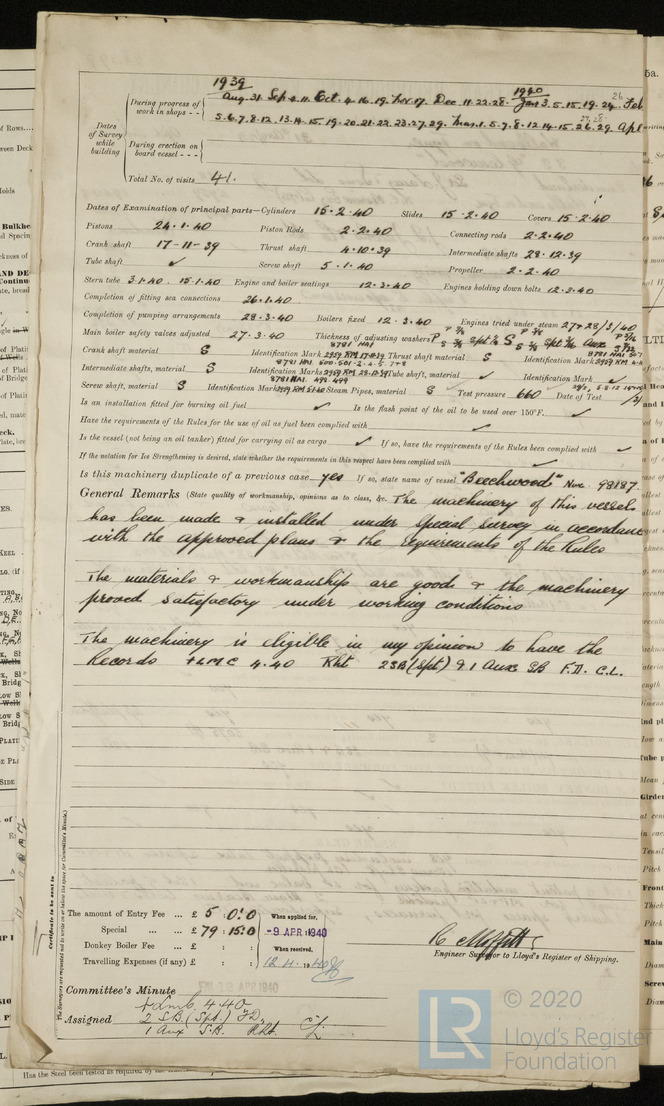 1939
1940
During progress of work in shops - - Aug. 31 Sep 4. 11. Oct. 4. 16. 19. Nov. 17. Dec 11. 22. 28. Jan 3. 5. 15. 19. 24. 26 Feb
5. 6. 7. 8. 12. 13. 14. 15. 19. 20. 21. 22. 23. 27. 29. Mar. 1. 5. 7. 8. 12. 14. 15. 26. 29. Apl
Dates of Survey while building
During erection on board vessel - - -
Total No. of visits 41.
Dates of Examination of principal parts—Cylinders 15.2.40 Slides 15.2.40 Covers 15.2.40
Pistons 24.1.40 Piston Rods 2.2.40 Connecting rods 2.2.40
Crank shaft 17-11-39 Thrust shaft 4.10.39 Intermediate shafts 28.12.39
Tube shaft ✓ Screw shaft 5.1.40 Propeller 2.2.40
Stern tube 3.1.40. 15.1.40 Engine and boiler seatings 12.3.40 Engines holding down bolts 12.3.40
Completion of fitting sea connections 26.1.40
Completion of pumping arrangements 28.3.40 Boilers fixed 12.3.40 Engines tried under steam 27 & 28/3/40
Main boiler safety valves adjusted 27.3.40 Thickness of adjusting washers
Crank shaft material S Identification Mark Thrust shaft material S Identification Mark
Intermediate shafts, material S Identification Marks Tube shaft, material ✓ Identification Mark ✓
Screw shaft, material S Identification Mark Steam Pipes, material S Test pressure 660 Date of Test
Is an installation fitted for burning oil fuel ✓ Is the flash point of the oil to be used over 150°F. ✓
Have the requirements of the Rules for the use of oil as fuel been complied with ✓
Is the vessel (not being an oil tanker) fitted for carrying oil as cargo ✓ If so, have the requirements of the Rules been complied with ✓
If the notation for Ice Strengthening is desired, state whether the requirements in this respect have been complied with ✓
Is this machinery duplicate of a previous case yes If so, state name of vessel "Beechwood" Nwc. 98187.
General Remarks (State quality of workmanship, opinions as to class, &c. The machinery of this vessels
has been made & installed under Special Survey in accordance
with the approved plans & the requirements of the Rules
The materials & workmanship are good & the machinery
proved satisfactory under working conditions
The machinery is eligible in my opinion to have the
Records +LMC 4.40 Rht 2SB (Spt) & 1 Aux SB F.D. C.L.
Certificate to be sent to
(The Surveyors are requested not to write on or below the space for Committee's Minute.)
The amount of Entry Fee ... £ 5 : 0 : 0 When applied for,
Special ... ... £ 79 : 15 : 0 - 9 APR 1940
Donkey Boiler Fee ... £ : : When received,
Travelling Expenses (if any) £ : : 12.4.1940
R. Moffitt
Engineer Surveyor to Lloyd's Register of Shipping.
12 APR 1940
Committee's Minute
+Lmc 4.40
Assigned 2 S.B. (Spt.) F.D.
1 Aux S.B. Rht. C.L.
© 2020
Lloyd's Register
Foundation
LR
Has the Steel been tested as required by the